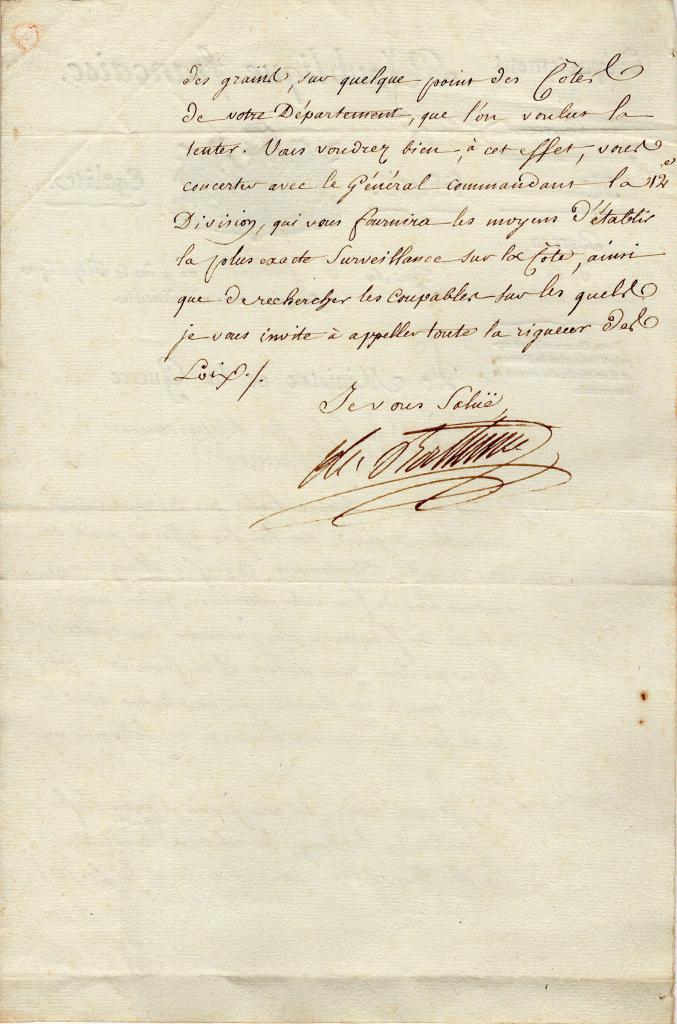 des grains, sur quelque point des Côtes
de votre Département, que l'on voulut la
tenter. Vous voudrez bien, à cet effet, vous
concerter avec le Général commandant la 12e
Division, qui vous fournira les moyens d'établir
la plus exacte Surveillance sur la Côte, ainsi
que de rechercher les coupables sur les quels
je vous invite à appeller toute la rigueur des
Loix ./.
Je vous Salüe,